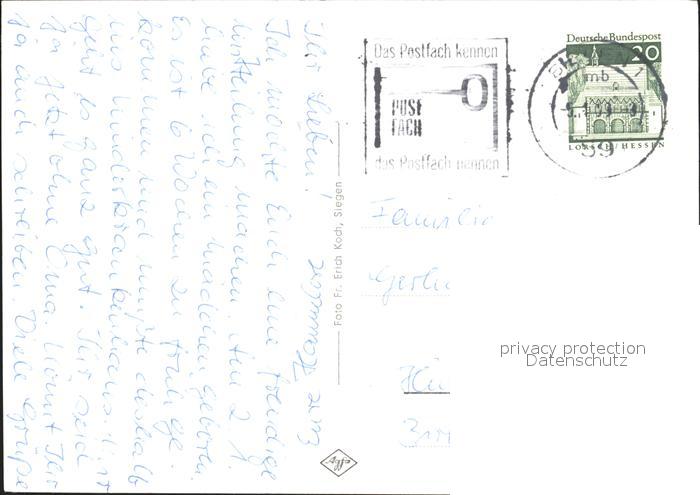 Ihr Lieben!
Ich möchte Euch eine freudige
Mitteilung machen. Am 2. 1.
habe ich ein Mädchen geboren.
Es ist 6 Wochen zu früh ge-
kommen und mußte deshalb
ins Kinderkrankenhaus. Mir
geht es ganz gut. Ihr seid
ja jetzt ohne Oma. Könnt Ihr
ja auch schreiben. Viele Grüße
Foto Fr. Erich Koch, Siegen
Agfa
Das Postfach kennen
POST
FACH
das Postfach nennen
Deutsche Bundespost
20
mb
59
LORSCH / HESSEN
Familie
privacy protection
Datenschutz